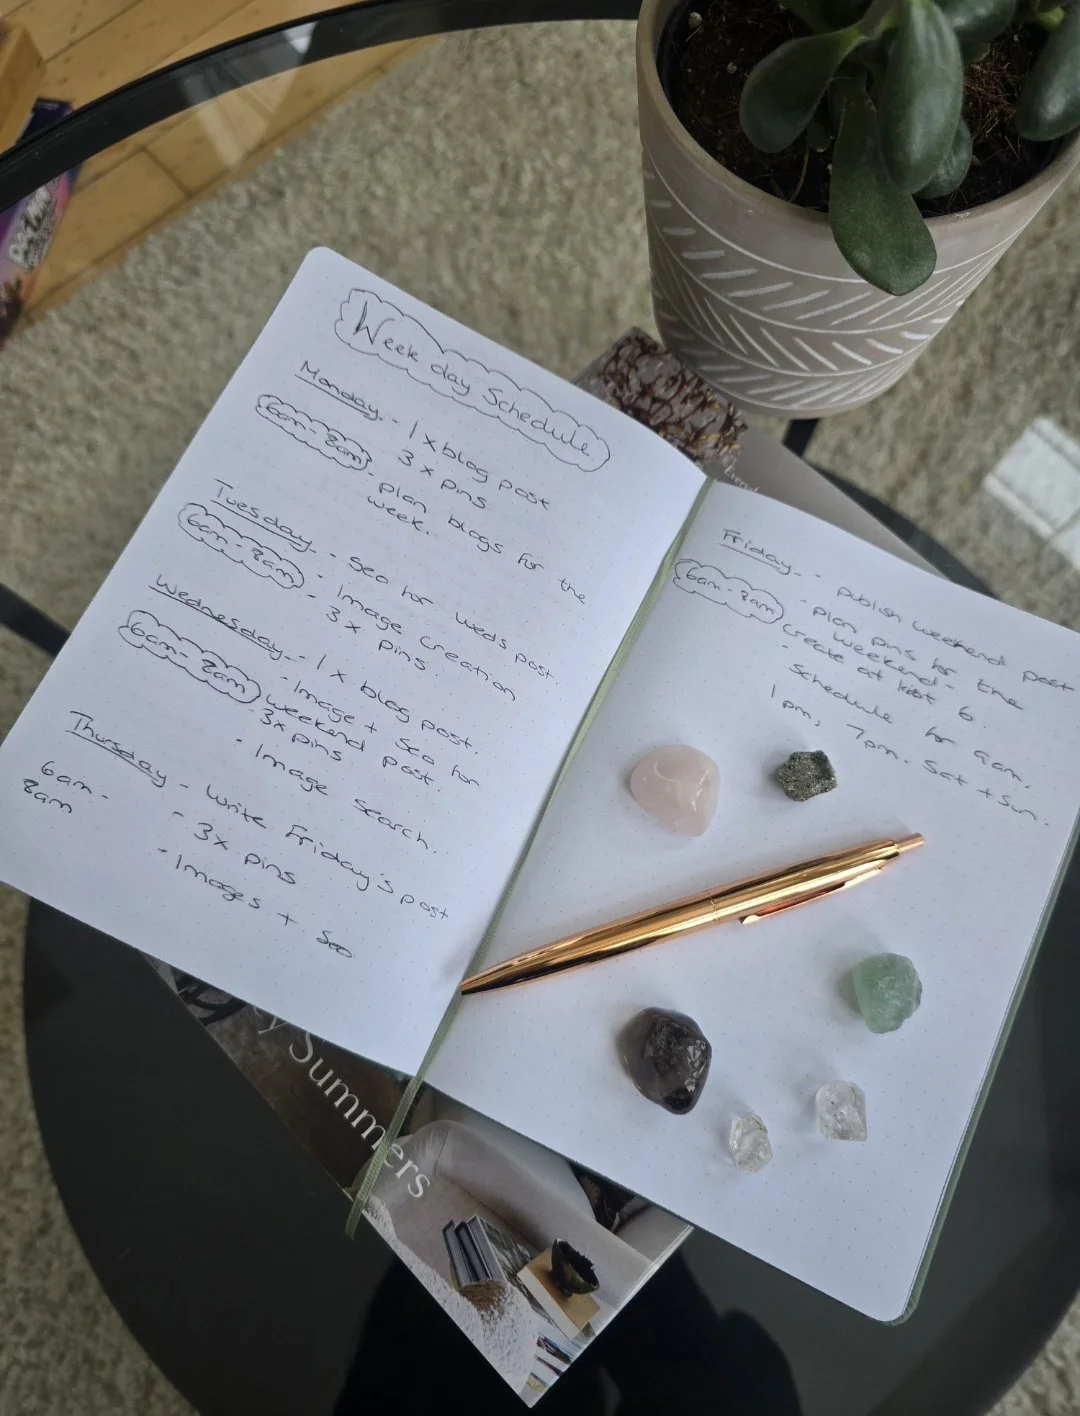 Week day Schedule
Monday - 1 x blog post
6am - 8am
3 x pins
- plan blogs for the
week.
Tuesday - Seo for weds post.
6am - 8am
- Image creation
- 3 x pins.
Wednesday - 1 x blog post.
6am - 8am
- Image + Seo for
weekend post.
3x pins
- Image search.
Thursday - Write Friday's post
6am -
8am
- 3x pins
- Images + Seo
Friday - publish weekend post
6am - 8am
- plan pins for the
weekend -
create at least 6
- schedule for 9am,
1pm, 7pm. Sat + Sun.
Summers